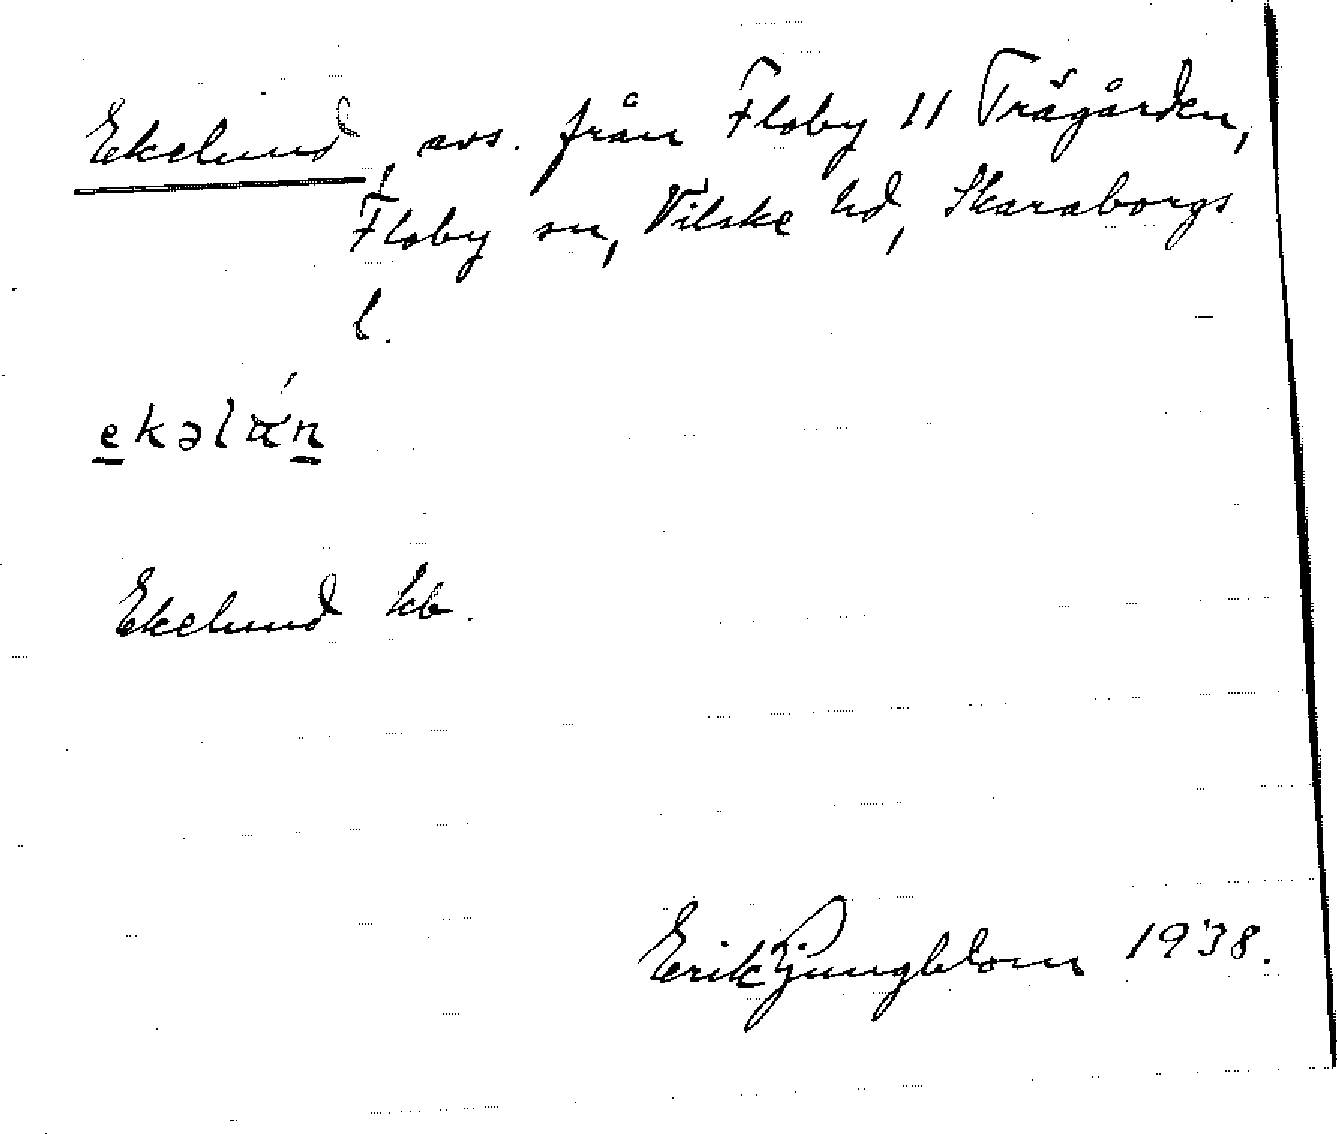 Ekelund, avs. från Floby 11 Trägården,
Floby sn, Vilske hd, Skaraborgs
l.
ekəlán
Ekelund kb.
Erik Ljungblom 1938.